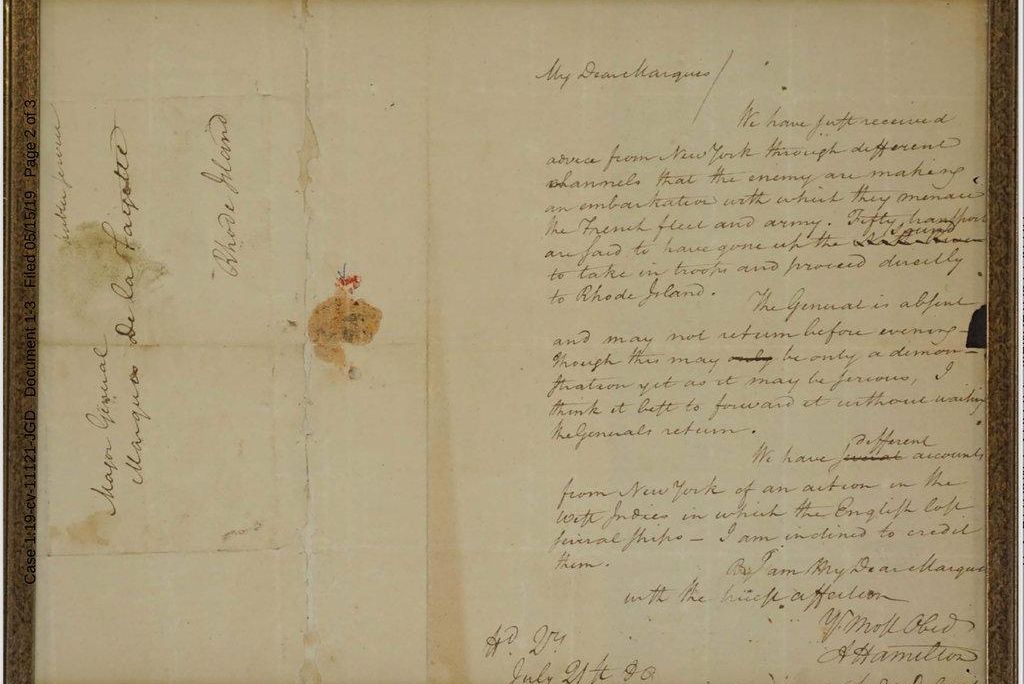 Case 1:19-cv-11121-JGD Document 1-3 Filed 05/15/19 Page 2 of 3
Major General
Marquis De la Fayette
Rhode Island
My Dear Marquis
We have just received
advice from New York through different
channels that the enemy are making
an embarkation with which they menace
the French fleet and army. Fifty transport
Sound
are said to have gone up the
to take in troops and proceed directly
to Rhode Island.
The General is absent
and may not return before evening—
Though this may only be only a demon-
stration yet as it may be serious, I
think it best to forward it without waiting
the Generals return.
different
We have several accounts
from New York of an action in the
West Indies in which the English lost
several ships — I am inclined to credit
them.
I am My Dear Marquis
with the truest affection
Yr. Most Obed
A Hamilton
Hd. Qrs
July 21st 80